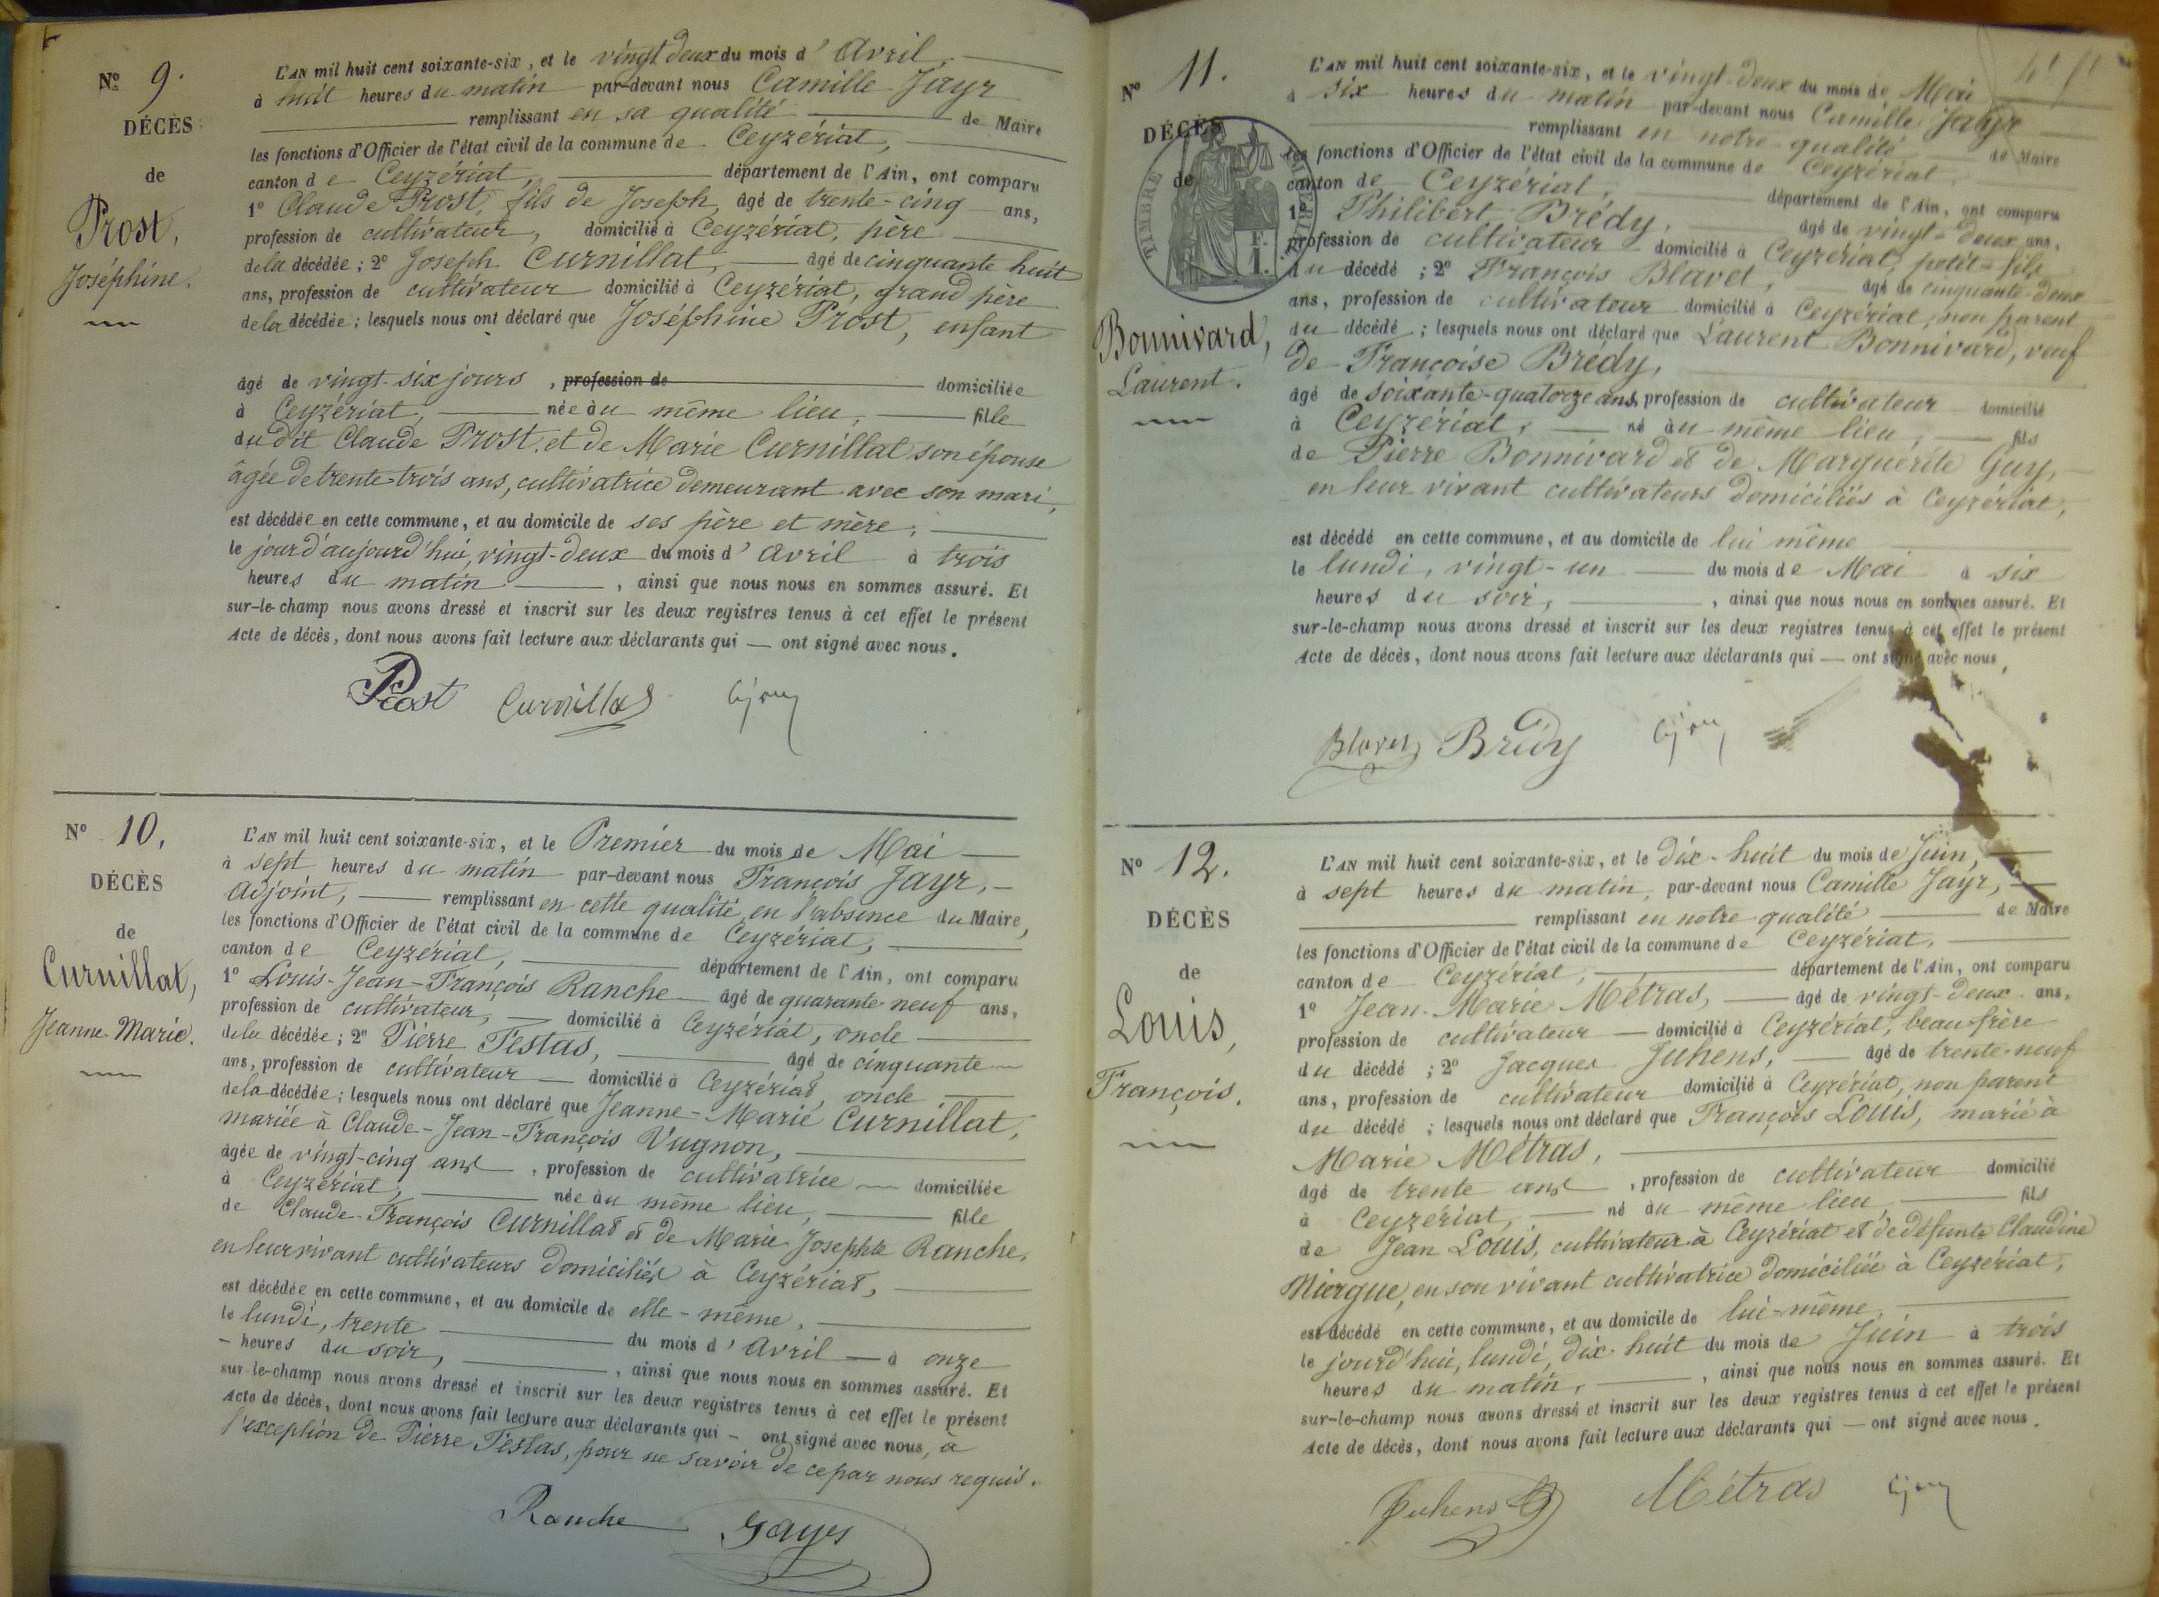 Nº 9.
DÉCÈS
de
Prost,
Joséphine.
L'AN mil huit cent soixante-six, et le vingt deux du mois d' Avril,
à huit heures du matin par-devant nous Camille Jayr
remplissant en sa qualité de Maire
les fonctions d'Officier de l'état civil de la commune de Ceyzériat,
canton de Ceyzériat, département de l'Ain, ont comparu
1º Claude Prost, fils de Joseph, âgé de trente-cinq ans,
profession de cultivateur, domicilié à Ceyzériat, père
de la décédée ; 2º Joseph Curnillat, âgé de cinquante huit
ans, profession de cultivateur domicilié à Ceyzériat, grand père
de la décédée ; lesquels nous ont déclaré que Joséphine Prost, enfant
âgé de vingt-six jours, profession de domiciliée
à Ceyzériat, née au même lieu, fille
du dit Claude Prost, et de Marie Curnillat son épouse
âgée de trente-trois ans, cultivatrice demeurant avec son mari,
est décédée en cette commune, et au domicile de ses père et mère,
le jour d'aujourd'hui, vingt-deux du mois d' Avril à trois
heures du matin, ainsi que nous nous en sommes assuré. Et
sur-le-champ nous avons dressé et inscrit sur les deux registres tenus à cet effet le présent
Acte de décès, dont nous avons fait lecture aux déclarants qui — ont signé avec nous.
Prost Curnillat
Nº 10.
DÉCÈS
de
Curnillat,
Jeanne-Marie.
L'AN mil huit cent soixante-six, et le Premier du mois de Mai
à sept heures du matin par-devant nous François Jayr,
Adjoint, remplissant en cette qualité, en l'absence du Maire,
les fonctions d'Officier de l'état civil de la commune de Ceyzériat,
canton de Ceyzériat, département de l'Ain, ont comparu
1º Louis-Jean-François Ranche âgé de quarante-neuf ans,
profession de cultivateur, domicilié à Ceyzériat, oncle
de la décédée ; 2º Pierre Testas, âgé de cinquante
ans, profession de cultivateur domicilié à Ceyzériat, oncle
de la décédée ; lesquels nous ont déclaré que Jeanne-Marie Curnillat,
mariée à Claude-Jean-François Vugnon,
âgée de vingt-cinq ans, profession de cultivatrice domiciliée
à Ceyzériat, née au même lieu, fille
de Claude-François Curnillat et de Marie Josephte Ranche,
en leur vivant cultivateurs domiciliés à Ceyzériat,
est décédée en cette commune, et au domicile de elle-même,
le lundi, trente du mois d' Avril à onze
heures du soir, ainsi que nous nous en sommes assuré. Et
sur-le-champ nous avons dressé et inscrit sur les deux registres tenus à cet effet le présent
Acte de décès, dont nous avons fait lecture aux déclarants qui — ont signé avec nous, à
l'exception de Pierre Testas, pour ne savoir de ce par nous requis.
Ranche Jayr
Nº 11.
DÉCÈS
de
TIMBRE IMPÉRIAL
Bonnivard,
Laurent.
L'AN mil huit cent soixante-six, et le vingt-deux du mois de Mai
à six heures du matin par-devant nous Camille Jayr
remplissant en notre qualité de Maire
les fonctions d'Officier de l'état civil de la commune de Ceyzériat,
canton de Ceyzériat, département de l'Ain, ont comparu
1º Philibert Brédy, âgé de vingt-deux ans,
profession de cultivateur domicilié à Ceyzériat, petit-fils
du décédé ; 2º François Blavet, âgé de cinquante-deux
ans, profession de cultivateur domicilié à Ceyzériat, non parent
du décédé ; lesquels nous ont déclaré que Laurent Bonnivard, veuf
de Françoise Brédy,
âgé de soixante-quatorze ans, profession de cultivateur domicilié
à Ceyzériat, né au même lieu, fils
de Pierre Bonnivard et de Marguerite Guy,
en leur vivant cultivateurs domiciliés à Ceyzériat,
est décédé en cette commune, et au domicile de lui même
le lundi, vingt-un du mois de Mai à six
heures du soir, ainsi que nous nous en sommes assuré. Et
sur-le-champ nous avons dressé et inscrit sur les deux registres tenus à cet effet le présent
Acte de décès, dont nous avons fait lecture aux déclarants qui — ont signé avec nous,
Blavet Brédy
Nº 12.
DÉCÈS
de
Louis,
François.
L'AN mil huit cent soixante-six, et le dix-huit du mois de Juin,
à sept heures du matin, par-devant nous Camille Jayr,
remplissant en notre qualité de Maire
les fonctions d'Officier de l'état civil de la commune de Ceyzériat,
canton de Ceyzériat, département de l'Ain, ont comparu
1º Jean-Marie Métras, âgé de vingt-deux ans,
profession de cultivateur domicilié à Ceyzériat, beau-frère
du décédé ; 2º Jacques Juhens, âgé de trente-neuf
ans, profession de cultivateur domicilié à Ceyzériat, non parent
du décédé ; lesquels nous ont déclaré que François Louis, marié à
Marie Métras,
âgé de trente ans, profession de cultivateur domicilié
à Ceyzériat, né au même lieu, fils
de Jean Louis, cultivateur à Ceyzériat et de défunte Claudine
Niergue, en son vivant cultivatrice domiciliée à Ceyzériat,
est décédé en cette commune, et au domicile de lui-même,
le jourd'hui, lundi, dix-huit du mois de Juin à trois
heures du matin, ainsi que nous nous en sommes assuré. Et
sur-le-champ nous avons dressé et inscrit sur les deux registres tenus à cet effet le présent
Acte de décès, dont nous avons fait lecture aux déclarants qui — ont signé avec nous.
Juhens Métras